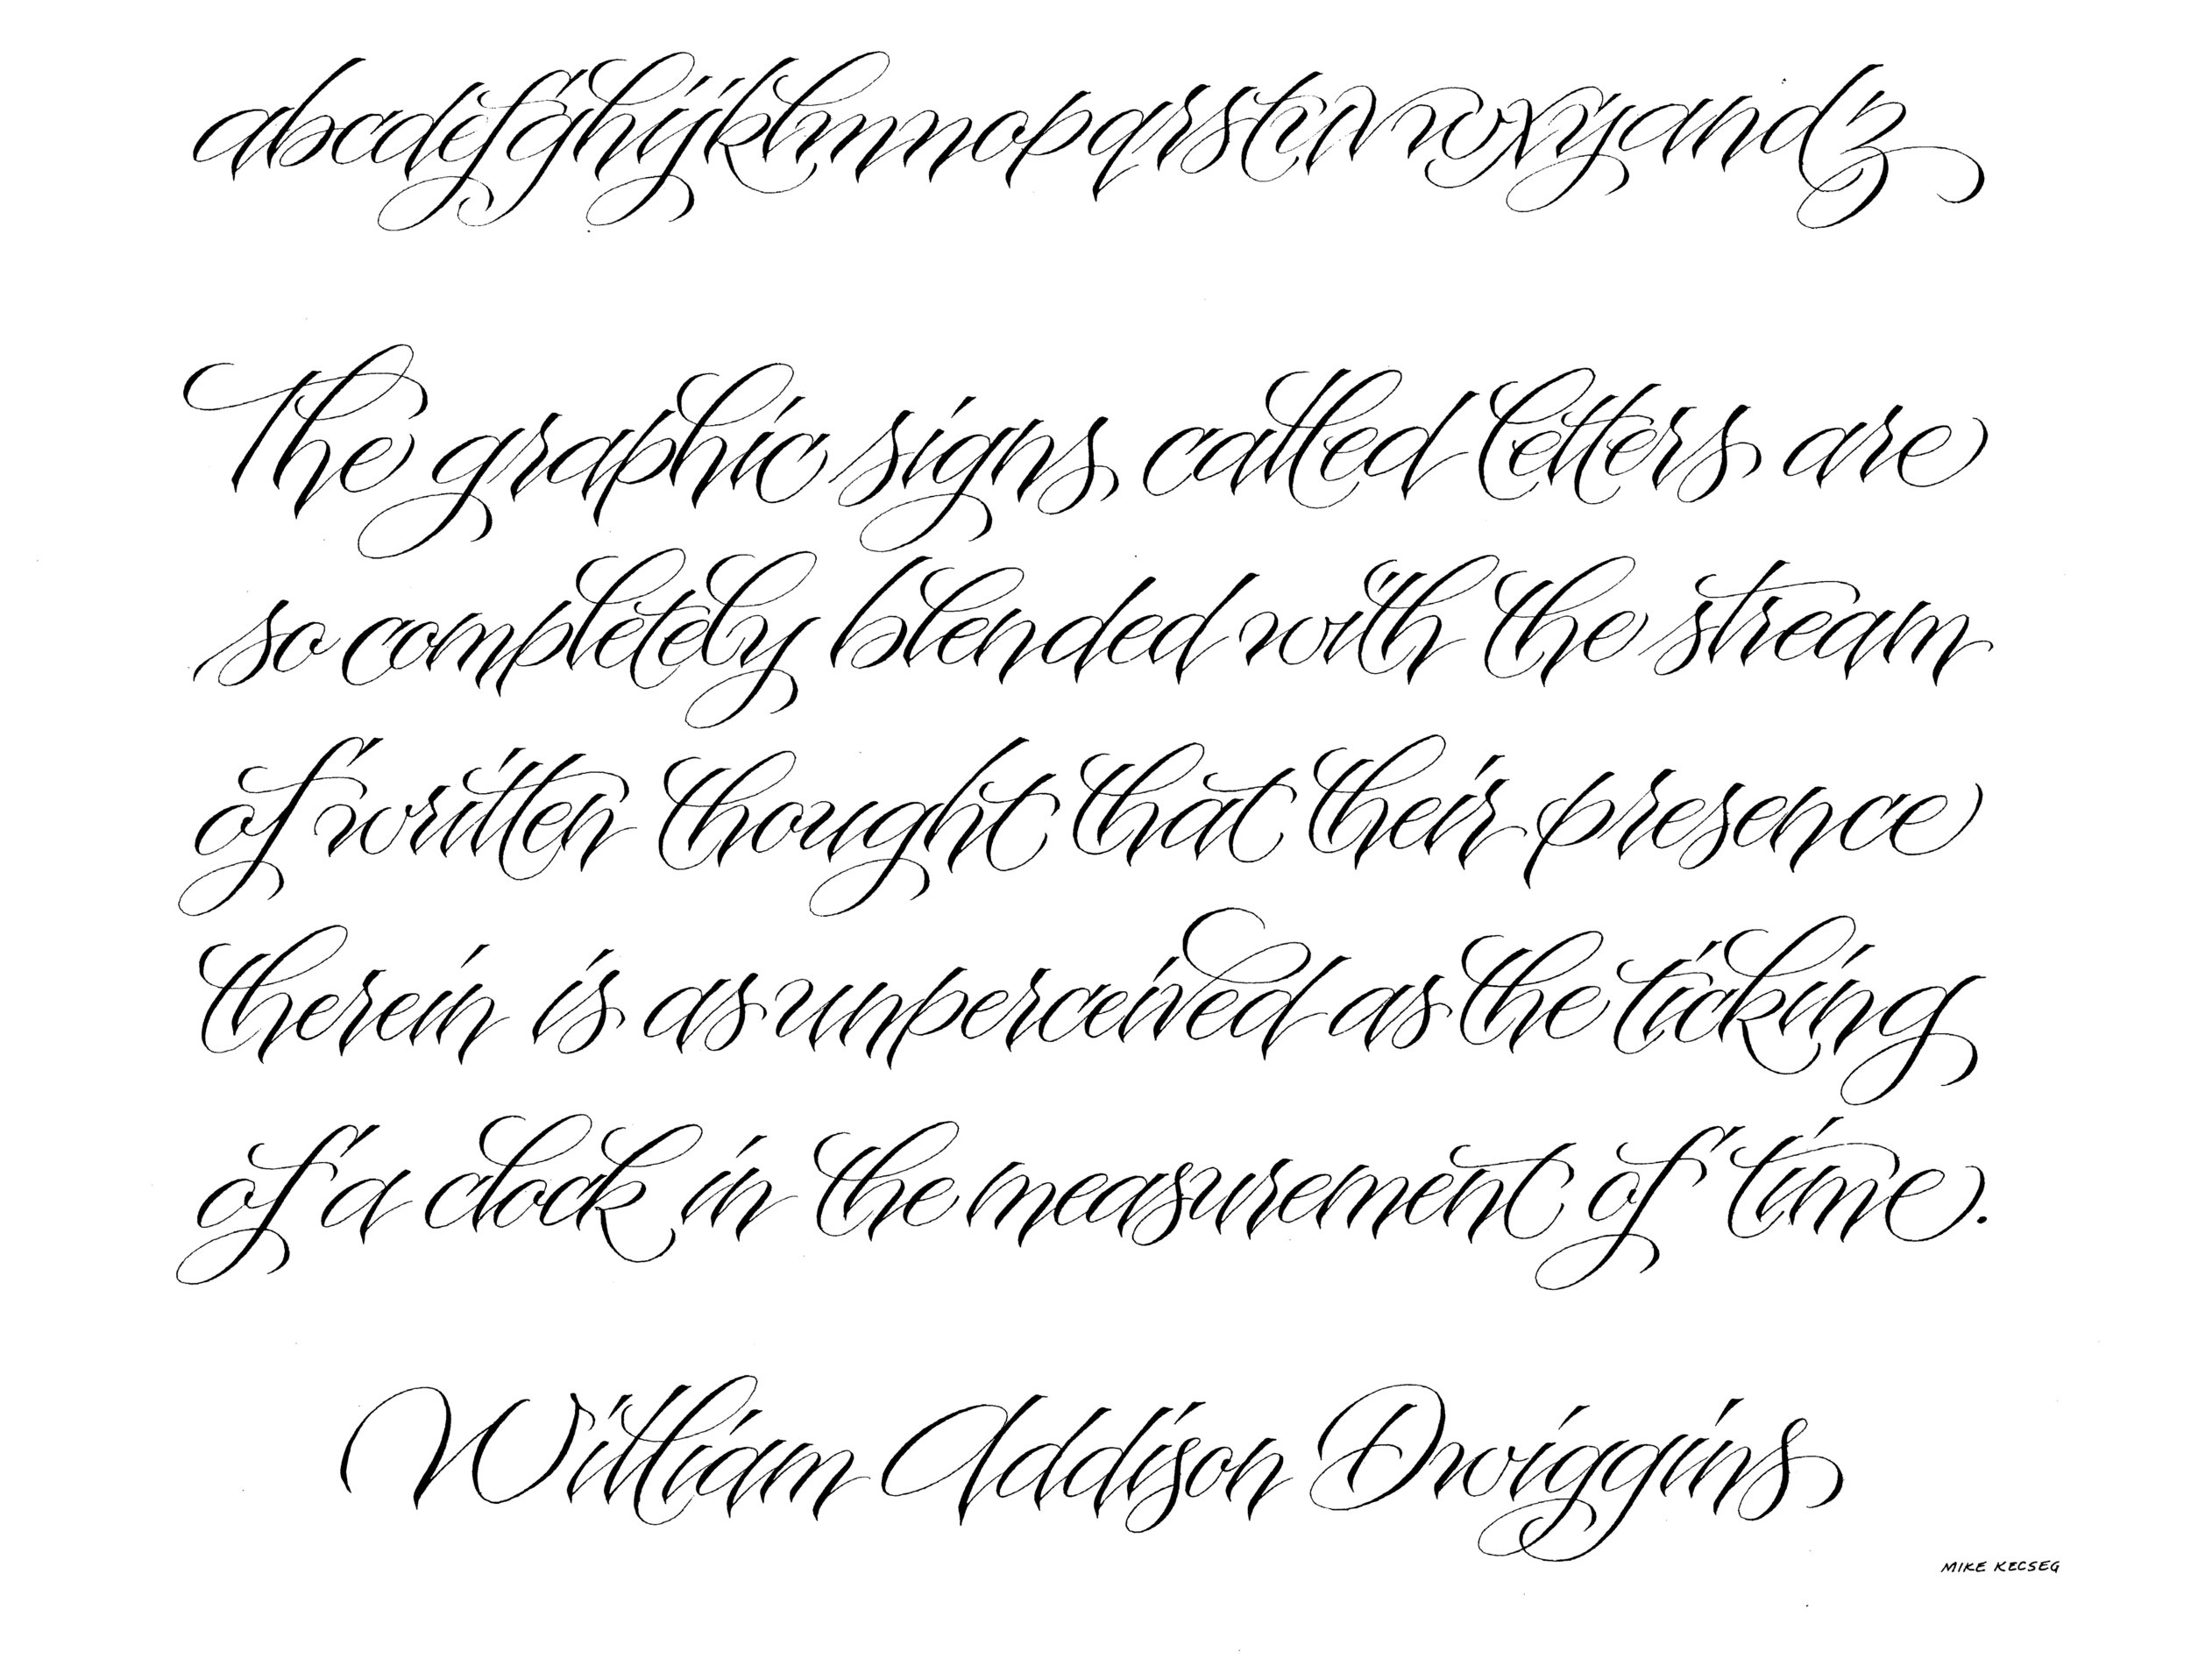 abcdefghijklmnopqrstuvwxyandz
The graphic signs called letters are
so completely blended with the stream
of written thought that their presence
therein is as unperceived as the ticking
of a clock in the measurement of time.
William Addison Dwiggins
MIKE KECSEG